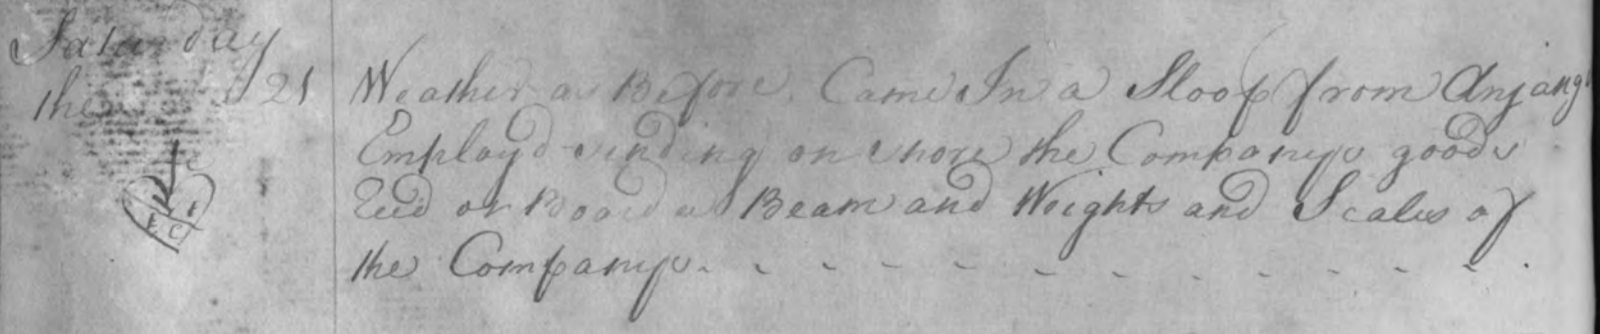 Saturday
the 21
Weather as Before, Came In a Sloop from Anjang
Employd sending on shore the Companys goods
Recd on Board a Beam and Weights and Scales of
the Companys - - - - - - - - - - - - .